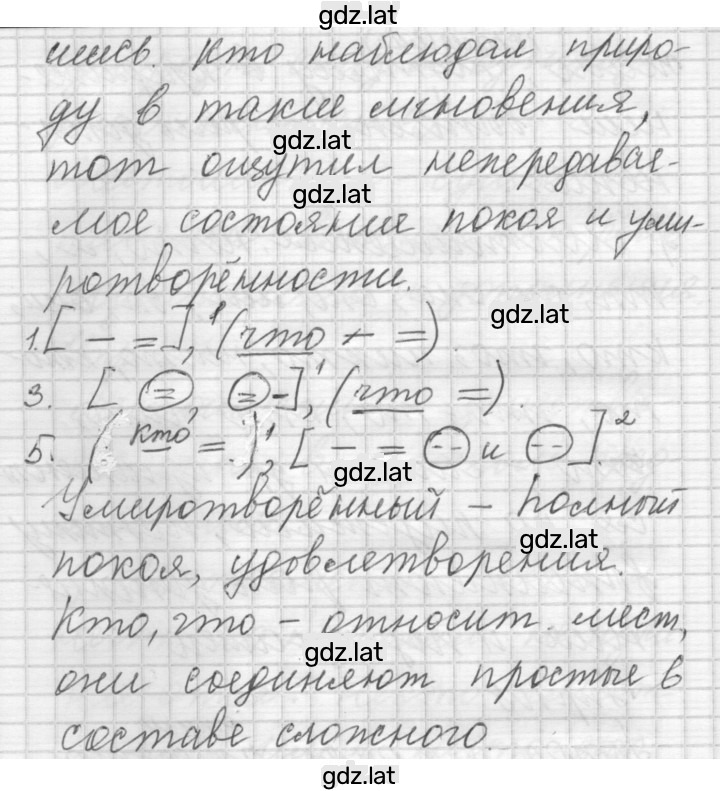 gdz.lat
шись. Кто наблюдал приро-
ду в такие мгновения,
gdz.lat
тот ощутил непередавае-
gdz.lat
мое состояние покоя и уми-
ротворённости.
gdz.lat
1. [ — = ],¹ (что — =).
3. [ =, = - ],¹ (что =).
5. (кто = ),¹ [ — = -- и -- ].²
gdz.lat
Умиротворённый – полный
gdz.lat
покоя, удовлетворения.
Кто, что – относит. мест.,
gdz.lat
они соединяют простые в
составе сложного.
gdz.lat